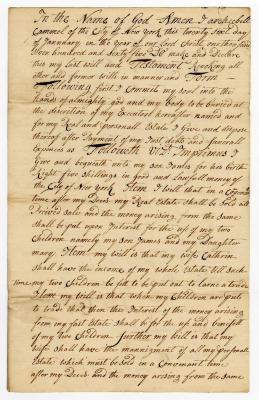 In the Name of God Amen I archibell
Cammel of the City of New York this twenty six day
of Janunary in the year of our Lord Christ one thousand
Seven hundred and sixty five Do make and declare
this my last will and Testament Revoking all
other and former wills in manner and Form
Following first I Commit my soul into the
hands of almighty god and my body to be buried at
the discretion of my Executors hereafter named and
for my Real and personall Estate I Give and dispose
thereof after Payment of my Just debts and funerall
expences as Followeth Vizt Imprimes I
Give and bequeath unto my son James for his birth
Right five shillings in Goods and Lawfull money of
the City of New York Item I will that in a Convenient
time after my Deces my Real Estate shall be Sold att
Private sale and the money arising from the same
shall be put upon Interest for the use of my two
Children namely my son James and my Daughter
mary Item my will is that my wife Cathrin
shall have the income of my whole Estate till such
time my two Children be fitt to be put out to Larne a trade
Item my will is that when my Children are put
to trade that then the Interest of the money arising
from my fast Estate shall be for the use and benefitt
of my two Children further my will is that my
wife shall have the mannigment of all my personall
Estate which must be sold in a Convenant time
after my Deces and the money arising from the same